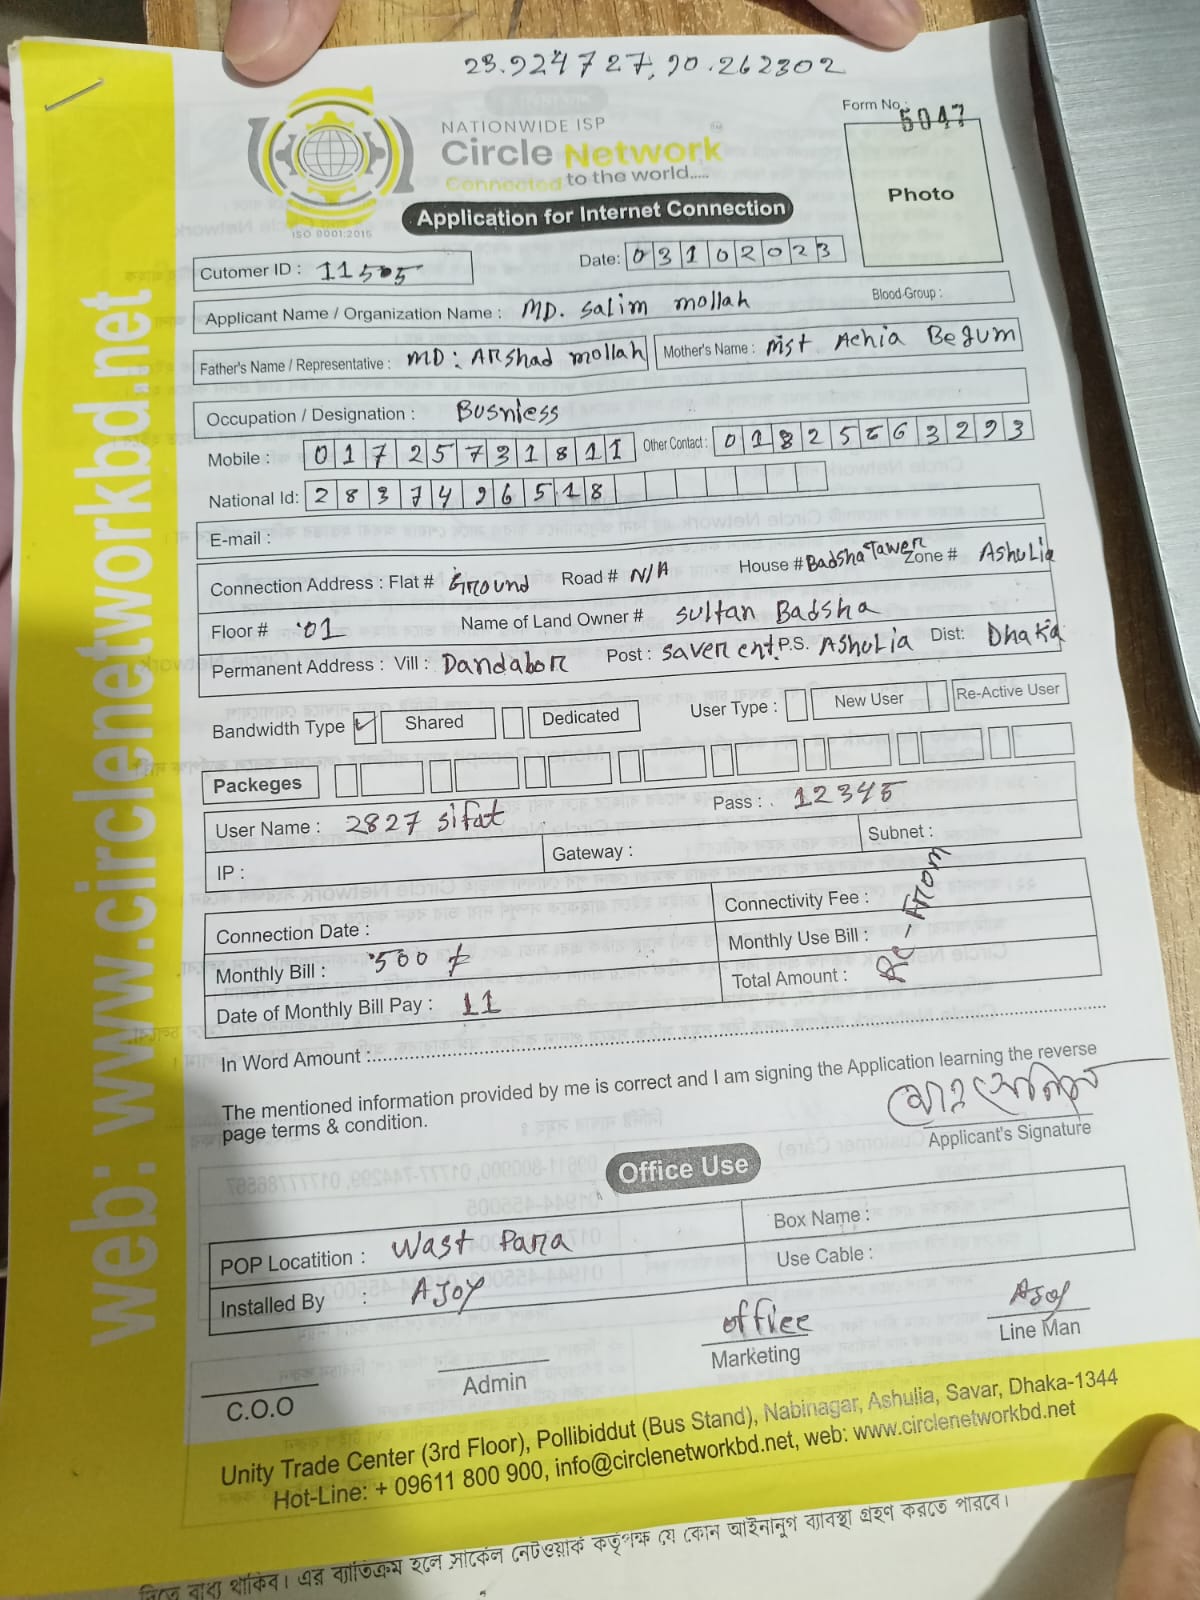 23.924727, 90.262302
Form No.: 5047
NATIONWIDE ISP
Circle Network
Connected to the world.....
ISO 9001:2015
Application for Internet Connection
Photo
Cutomer ID : 11505
Date: 03102023
Applicant Name / Organization Name : MD. Salim mollah
Blood Group :
Father's Name / Representative : MD: ARShad mollah
Mother's Name : Mist Achia Begum
Occupation / Designation : Busniess
Mobile : 01725731811
Other Contact : 01825563293
National Id: 2837496518
E-mail :
Connection Address : Flat # Ground Road # N/A House # Badsha Tawer Zone # AshuLia
Floor # 01 Name of Land Owner # Sultan Badsha
Permanent Address : Vill : Dandabor Post : Saver cnt P.S. AShuLia Dist: Dhaka
Bandwidth Type Shared Dedicated User Type : New User Re-Active User
Packeges
User Name : 2827 Sifat Pass : 12345
IP : Gateway : Subnet :
Connection Date : Connectivity Fee :
Monthly Bill : 500 Monthly Use Bill :
Date of Monthly Bill Pay : 11 Total Amount :
In Word Amount :
The mentioned information provided by me is correct and I am signing the Application learning the reverse
page terms & condition.
Applicant's Signature
Office Use
POP Locatition : Wast Para Box Name :
Installed By : AJOY Use Cable :
office AJOY
C.O.O Admin Marketing Line Man
Unity Trade Center (3rd Floor), Pollibiddut (Bus Stand), Nabinagar, Ashulia, Savar, Dhaka-1344
Hot-Line: + 09611 800 900, info@circlenetworkbd.net, web: www.circlenetworkbd.net
web: www.circlenetworkbd.net
দিতে বাধ্য থাকিব। এর ব্যতিক্রম হলে সার্কেল নেটওয়ার্ক কর্তৃপক্ষ যে কোন আইনানুগ ব্যবস্থা গ্রহণ করতে পারবে।